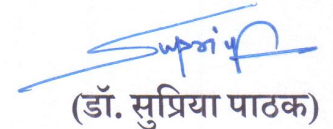 Supriya
(डॉ. सुप्रिया पाठक)